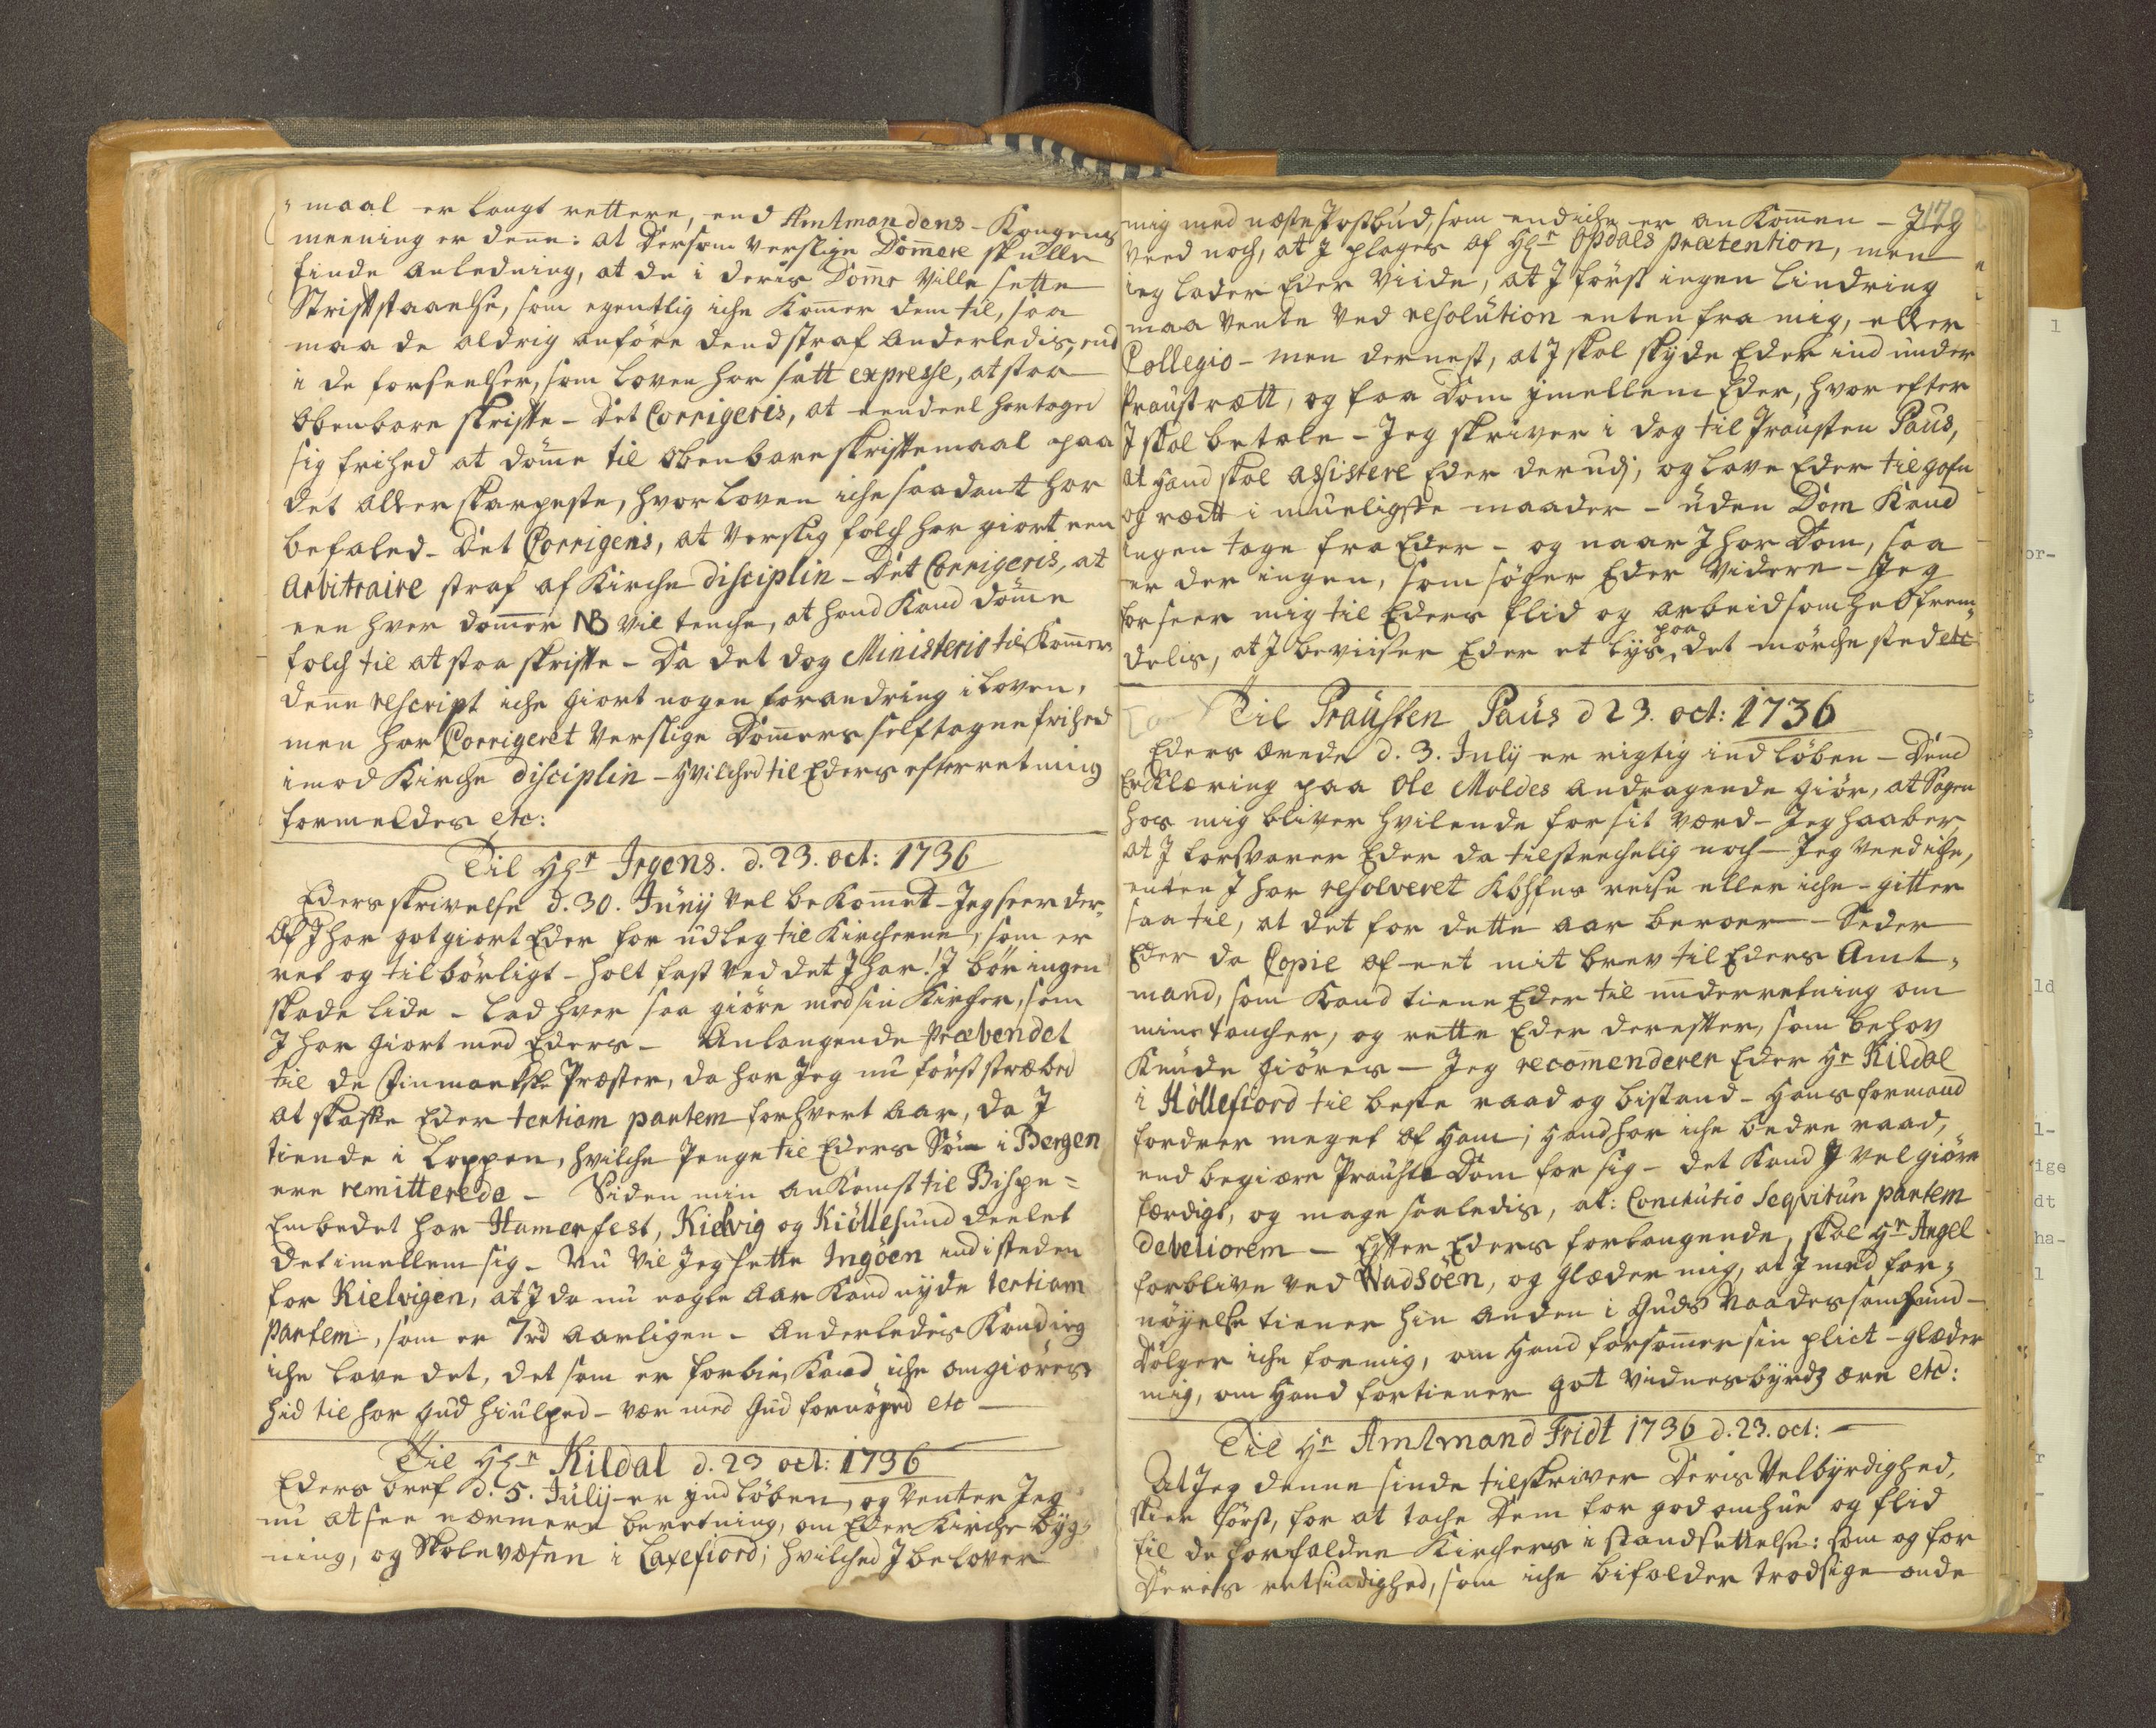 maal er langt rettere, end Amtmandens - Kongens
meening er denne: at Dersom Verslige Dommere skulle
finde anledning, at de i deris Domme Ville sette
Skriftstaaelse, som egentlig iche Kommer dem til, saa
maa de aldrig anföre dend straf anderledis, end
i de forseelser, som loven har satt expresse, at staa
obenbare skrifte - Det Corrigeris, at eendeel har taged
sig frihed at dömme til obenbare skriftemaal paa
det allerskarpeste, hvor loven iche saadant har
befaled - Det Corrigeris, at Verslig folch har giort een
arbitraire straf af Kirche disciplin - Det Corrigeris, at
een hver dommer NB Vil tenche, at hand Kand dömme
folch til at staa skrifte - Da det dog Ministerio tilkommer
denne rescript iche giort nogen forandring i loven,
men har Corrigeret Verslige Dommers selftagne frihed
imod Kirche disciplin - Hvilchet til Eders efterretning
formeldes etc:
Til Hr Irgens. d. 23. oct: 1736
Eders skrivelse d. 30. Junij Vel bekommet - Jeg seer der„
af J har gotgiort Eder for udleg til Kircherne, som er
ret og tilbörligt - holt fast Ved det J har! J bör ingen
skade lide - Lad hver saa giöre med sin Kircher, som
J har giort med Eders - Anlangende Præbendet
til de Finmarkske Præster, da har Jeg nu först stræbed
at skaffe Eder tertiam partem for hvert aar, da J
tiende i Loppen, hvilche Penge til Eders Sön i Bergen
ere remitterede - Siden min ankomst til Bispe=
Embedet har Hamerfest, Kielvig og Kiöllefiund deelet
det imellem sig - Nu Vil Jeg sette Ingöen ind i steden
for Kielvigen, at J da nu nogle aar Kand nyde tertiam
partem, som er 7rd aarligen - Anderledis Kand jeg
iche love det, det som er forbi, Kand iche omgiöres
hid til har Gud hiulped - Vær med Gud fornöyed etc -
Til Hr Kildal d. 23 oct: 1736
Eders bref d. 5. Julij er jndlöben, og Venter Jeg
nu at see nærmere beretning, om Eder Kirche byg„
ning, og Skolevæsen i Laxefiord; hvilched J belover
mig med næste Postbud, som end iche er ankommen - Jeg
Veed noch, at J plages af Hr Opdals prætention, men
jeg lader Eder Viide, at J först ingen lindring
maa Vente Ved resolution enten fra mig, eller
Collegio - men dernest, at J skal skyde Eder ind under
Praustrætt, og faa Dom jmellem Eder, hvorefter
J skal betale - Jeg skriver i dag til Prausten Paus,
at hand skal assistere Eder derudj, og lave Eder til gafn
og rædt i mueligste maader - uden Dom Kand
ingen tage fra Eder - og naar J har Dom, saa
er der ingen, som söger Eder Videre - Jeg
forseer mig til Eders flid og arbeidsomhed frem„
paa
delis, at J beviiser Eder et lys det mörche sted etc
179
Til Prausten Paus d 23. oct: 1736
Eders ærede d. 3. Julij er rigtig indlöben - Dend
Erklæring paa Ole Moldes andragende giör, at Sagen
hos mig bliver hvilende for sit værd - Jeg haaber
at J forsvarer Eder da tilstrechelig noch - Jeg Veed iche,
enten J har resolveret Kbhfns reise eller iche - gitter
saa til, at det for dette aar beroer - Seder
Eder da Copie af eet mit brev til Eders Amt„
mand, som Kand tiene Eder til underretning om
mine tancher, og rette Eder derefter, som behov
Kunde giöres - Jeg recommenderer Eder Hr Kildal
i Höllefiord til beste raad og bistand - Hans formand
fordrer meget af Ham; Hand har iche bedre raad,
end begiære Prauste Dom for sig - det Kand J vel giöre
færdigt, og mage saaledis, at: Conclutio seqvitur partem
debeliorem - Efter Eders forlangende, skal Hr Angel
forblive ved Wadsöen, og glæder mig, at J med for„
nöyelse tiener hin anden i Guds Naades samfund -
Dölger iche for mig, om Hand forsömmer sin plict - glæder
mig, om Hand fortiener got Vidnesbyrdz ære etc:
Til Hr Amtmand Fridt 1736 d. 23. oct: -
At Jeg denne sinde tilskriver Deris Velbyrdighed,
skier först, for at tache Dem for god omhue og flid
til de forfaldne Kirchers i standsettelse: som og for
Deris retsindighed, som iche bifalder trodsige onde